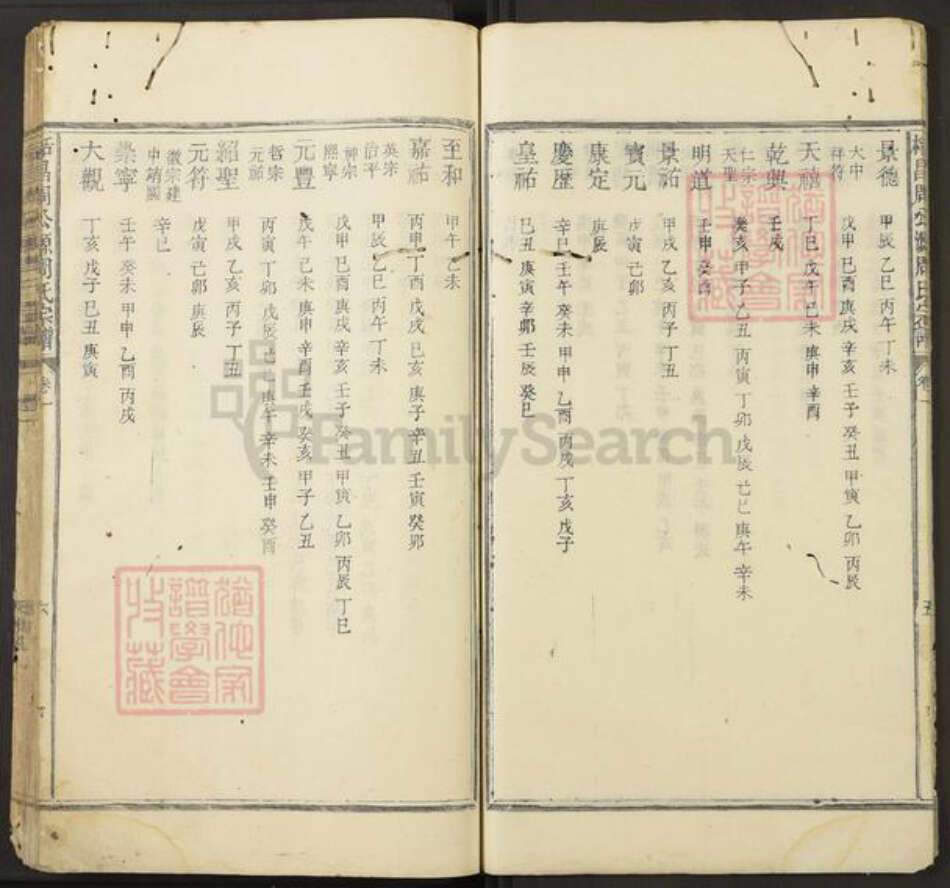 景德 甲辰 乙巳 丙午 丁未
大中祥符 戊申 己酉 庚戌 辛亥 壬子 癸丑 甲寅 乙卯 丙辰
天禧 丁巳 戊午 己未 庚申 辛酉
乾興 壬戌
仁宗天聖 癸亥 甲子 乙丑 丙寅 丁卯 戊辰 己巳 庚午 辛未
明道 壬申 癸酉
景祐 甲戌 乙亥 丙子 丁丑
寶元 戊寅 己卯
康定 庚辰
慶歷 辛巳 壬午 癸未 甲申 乙酉 丙戌 丁亥 戊子
皇祐 己丑 庚寅 辛卯 壬辰 癸巳
卷一
五
至和 甲午 乙未
嘉祐 丙申 丁酉 戊戌 己亥 庚子 辛丑 壬寅 癸卯
英宗治平 甲辰 乙巳 丙午 丁未
神宗熙寧 戊申 己酉 庚戌 辛亥 壬子 癸丑 甲寅 乙卯 丙辰 丁巳
元豐 戊午 己未 庚申 辛酉 壬戌 癸亥 甲子 乙丑
哲宗元祐 丙寅 丁卯 戊辰 己巳 庚午 辛未 壬申 癸酉
紹聖 甲戌 乙亥 丙子 丁丑
元符 戊寅 己卯 庚辰
徽宗建中靖國 辛巳
崇寧 壬午 癸未 甲申 乙酉 丙戌
大觀 丁亥 戊子 己丑 庚寅
周公源周氏宗譜 卷一
六
FamilySearch
猶他家譜學會收藏
猶他家譜學會收藏